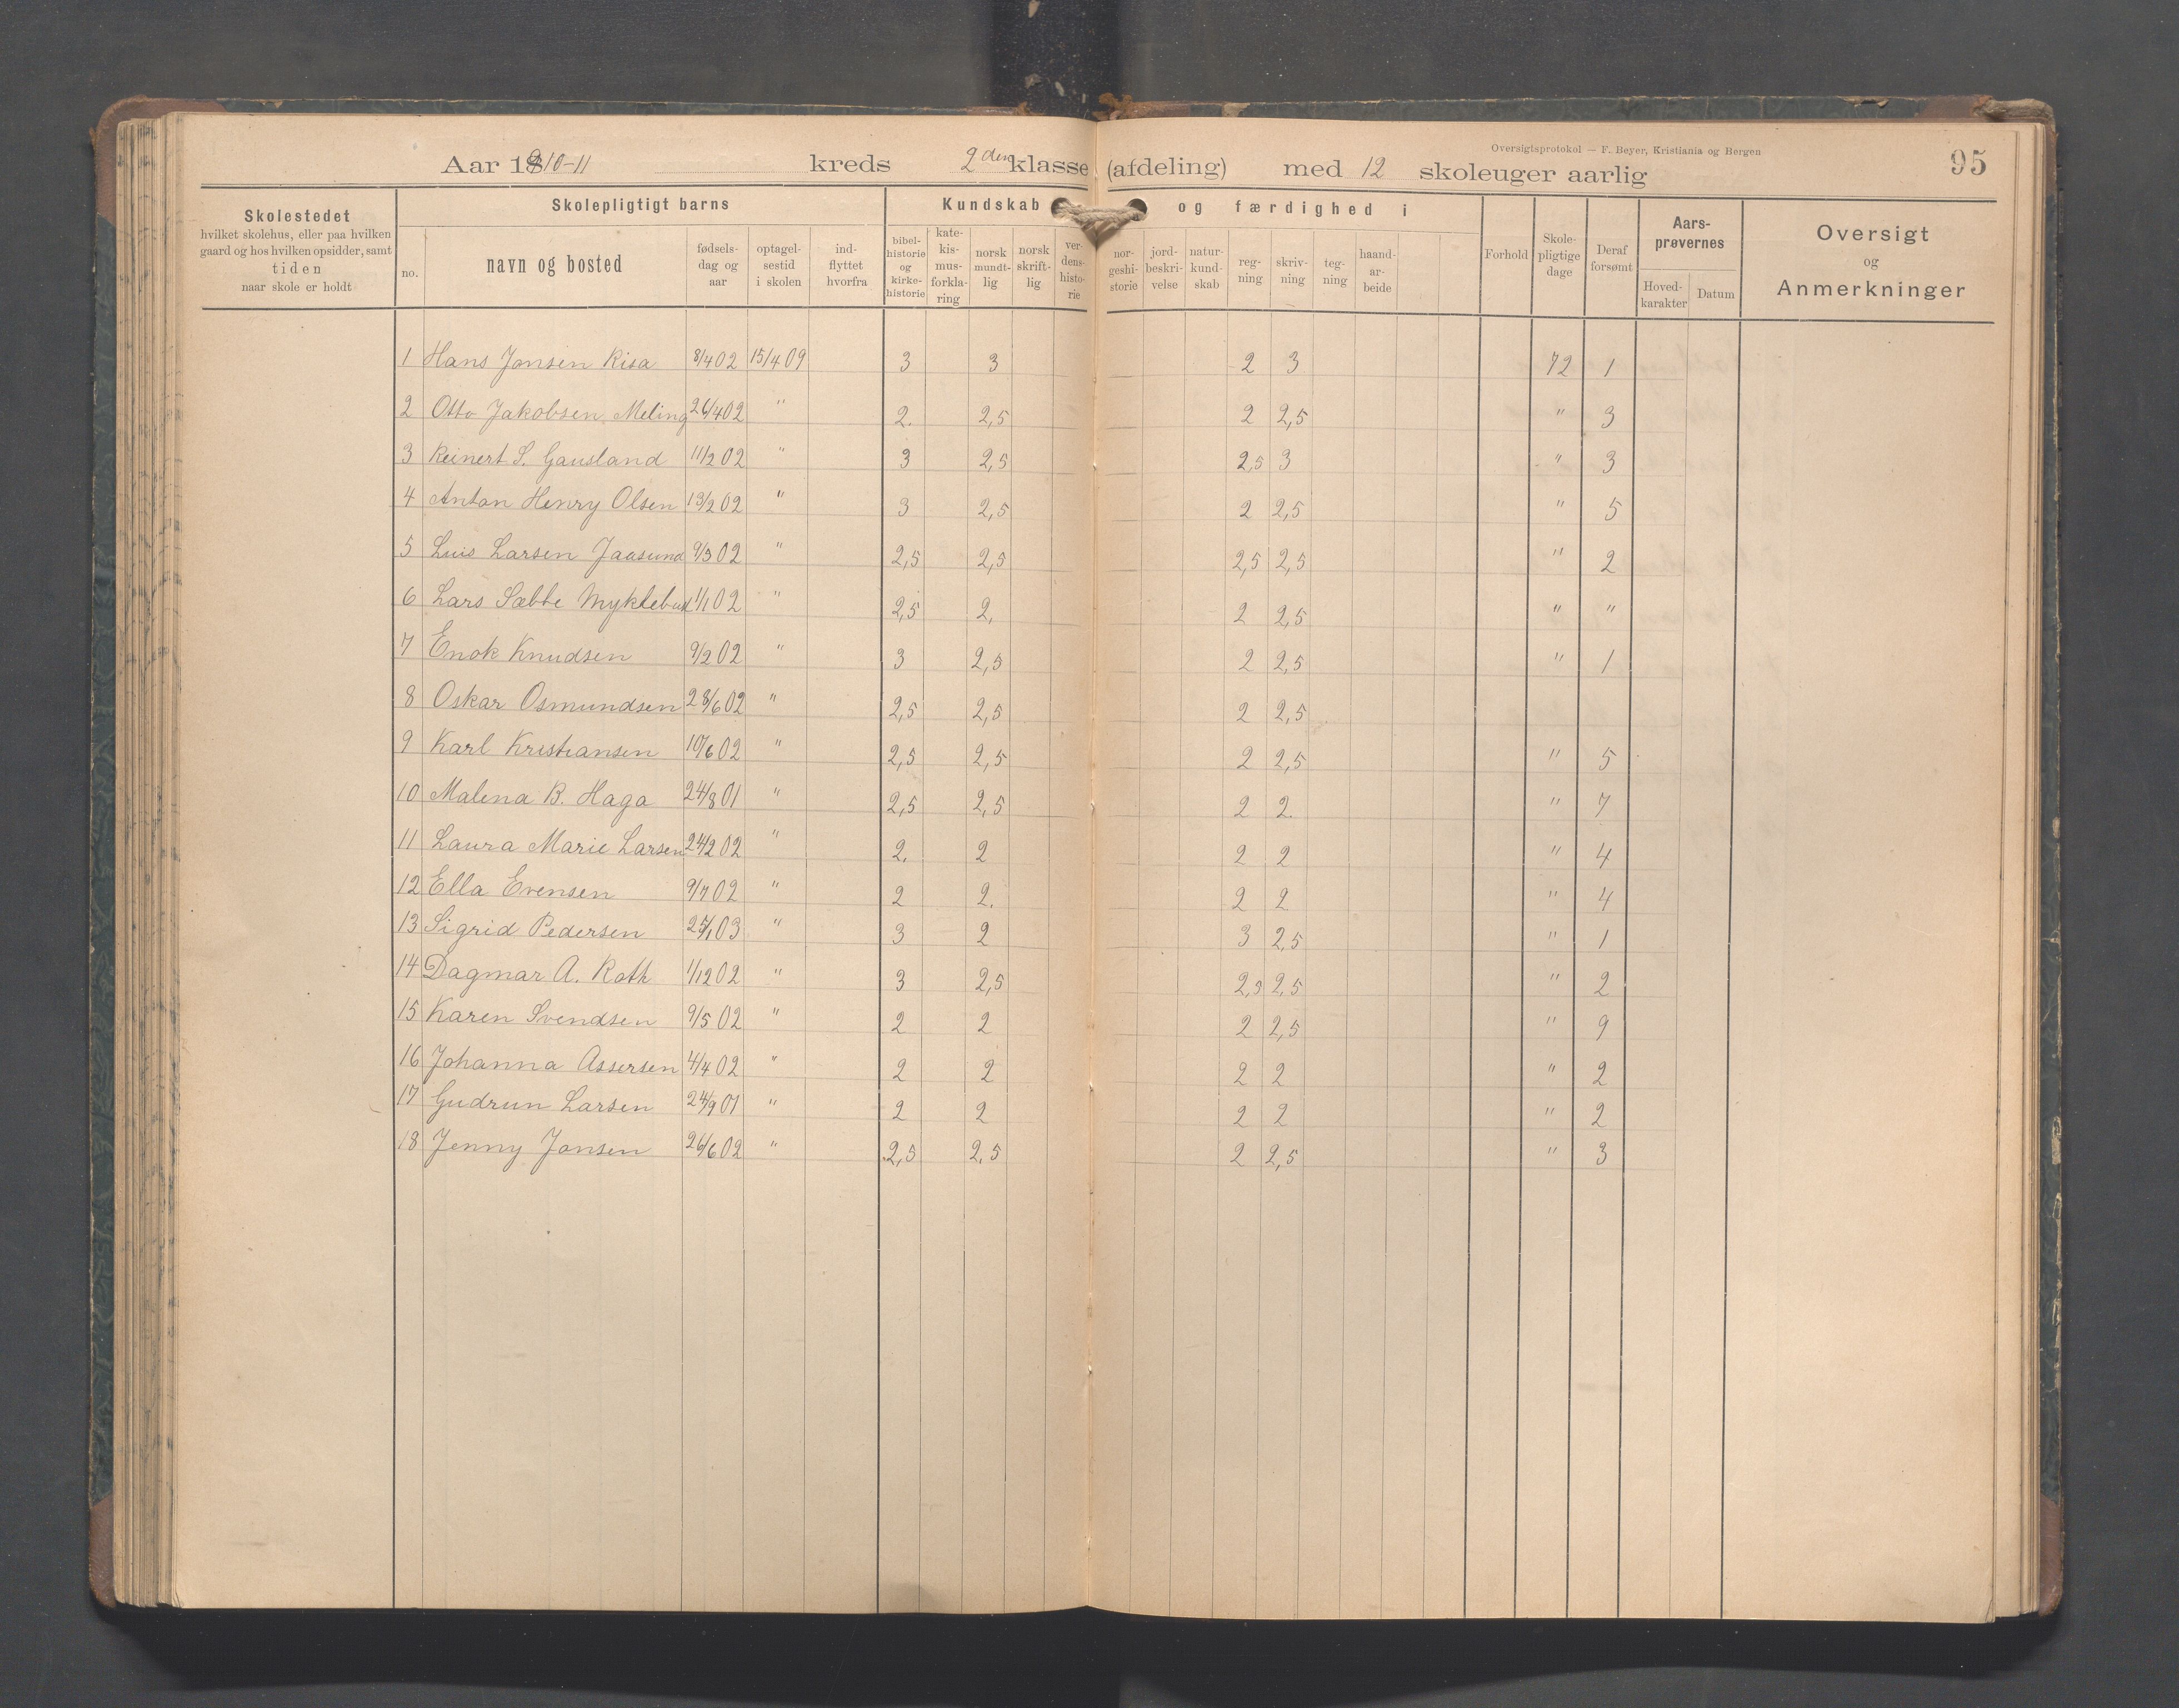 Oversigtsprotokol — F. Beyer, Kristiania og Bergen
95
Aar 1910-11 kreds 2den klasse (afdeling) med 12 skoleuger aarlig
Skolestedet
hvilket skolehus, eller paa hvilken
gaard og hos hvilken opsidder, samt
tiden
naar skole er holdt
Skolepligtigt barns
no.
navn og bosted
fødsels-
dag og
aar
optagel-
sestid
i skolen
ind-
flyttet
hvorfra
Kundskab og færdighed i
bibel-
historie
og
kirke-
historie
kate-
kis-
mus-
forkla-
ring
norsk
mundt-
lig
norsk
skrift-
lig
ver-
dens-
histo-
rie
nor-
geshi-
storie
jord-
beskri-
velse
natur-
kund-
skab
reg-
ning
skriv-
ning
teg-
ning
haand-
ar-
beide
Forhold
Skole-
pligtige
dage
Deraf
forsømt
Aars-
prøvernes
Hoved-
karakter
Datum
Oversigt
og
Anmerkninger
1 Hans Jonsen Risa 8/4 02 15/4 09 3 3 2 3 72 1
2 Otto Jakobsen Meling 26/4 02 " 2. 2,5 2 2,5 " 3
3 Reinert S. Gausland 11/2 02 " 3 2,5 2,5 3 " 3
4 Anton Henry Olsen 13/2 02 " 3 2,5 2 2,5 " 5
5 Luis Larsen Jaasund 9/3 02 " 2,5 2,5 2,5 2,5 " 2
6 Lars Sæbbe Myklebust 1/1 02 " 2,5 2. 2 2,5 " "
7 Enok Knudsen 9/2 02 " 3 2,5 2 2,5 " 1
8 Oskar Osmundsen 28/6 02 " 2,5 2,5 2 2,5
9 Karl Kristiansen 10/6 02 " 2,5 2,5 2 2,5 " 5
10 Malena B. Haga 24/8 01 " 2,5 2,5 2 2. " 7
11 Laura Marie Larsen 24/2 02 " 2. 2 2 2 " 4
12 Ella Evensen 9/7 02 " 2 2. 2 2 " 4
13 Sigrid Pedersen 25/1 03 " 3 2 3 2,5 " 1
14 Dagmar A. Roth 1/12 02 " 3 2,5 2,5 2,5 " 2
15 Karen Svendsen 9/5 02 " 2 2 2 2,5 " 9
16 Johanna Assersen 4/4 02 " 2 2 2 2 " 2
17 Gudrun Larsen 24/9 01 " 2 2 2 2 " 2
18 Jenny Jonsen 26/6 02 " 2,5 2,5 2 2,5 " 3